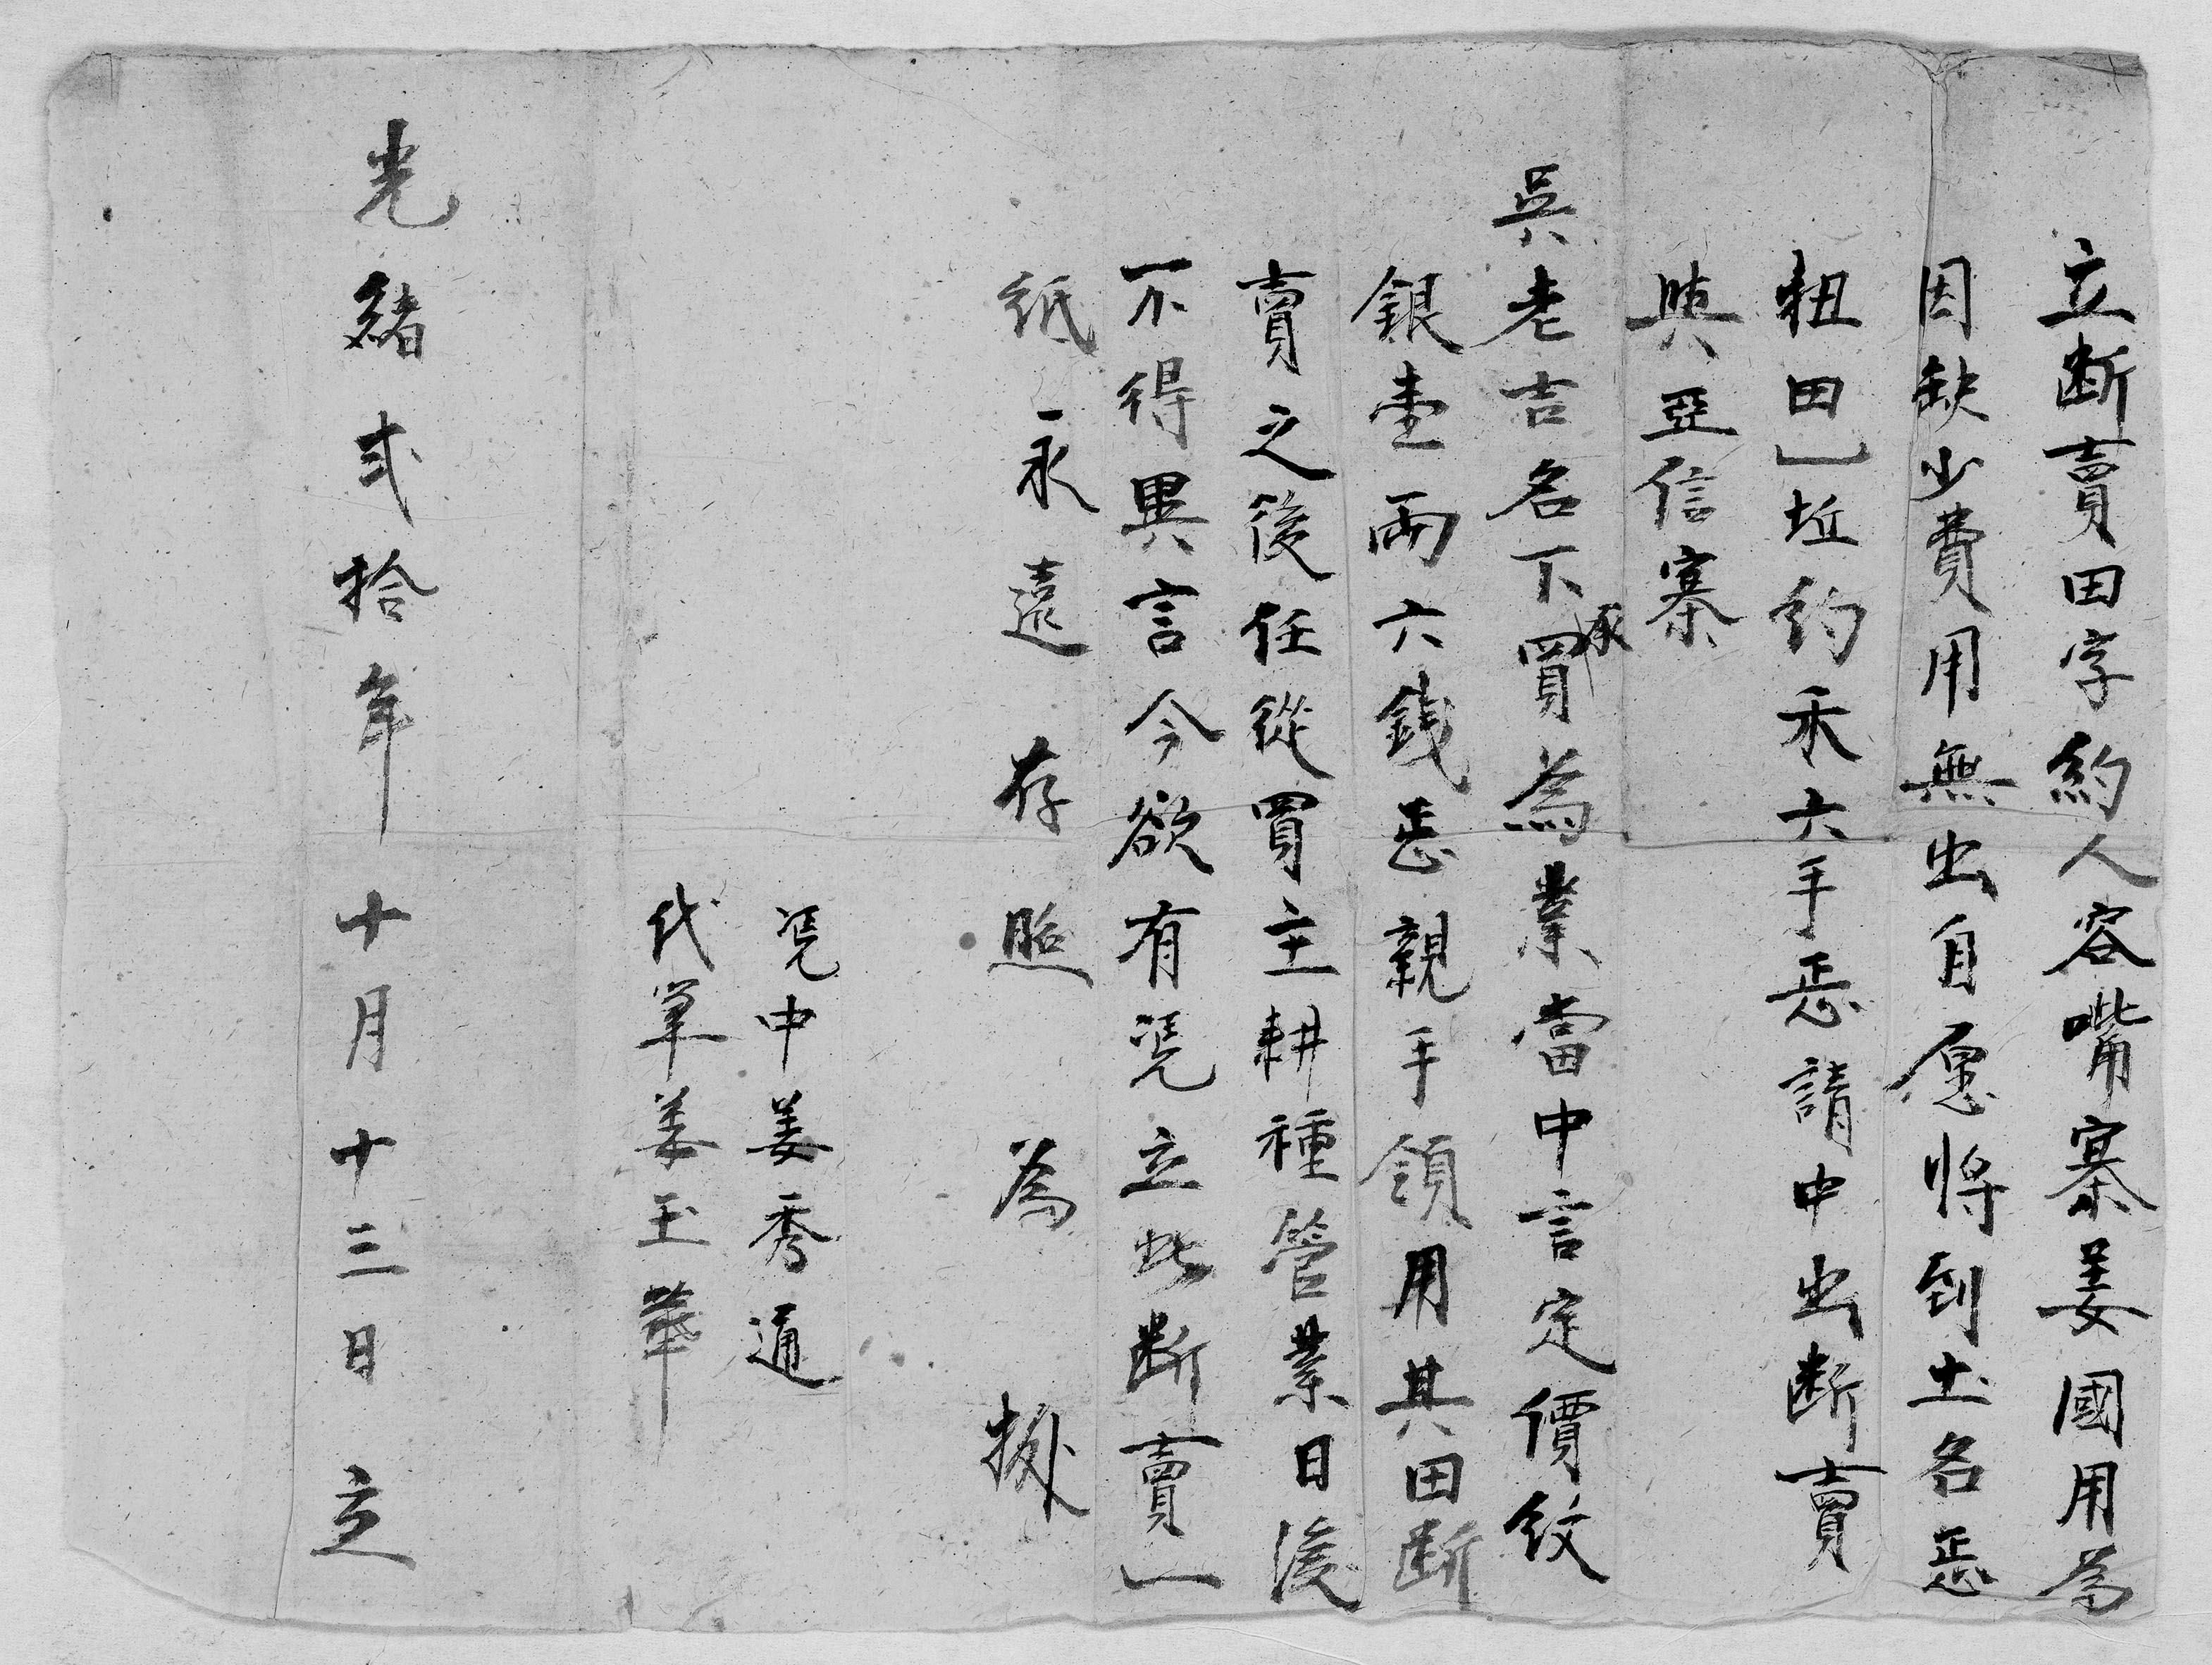 立断賣田字約人容嘴寨姜國用為
因缺少費用無出自愿将到土名恶
粗田一坵約禾六手恶請中出断賣
與亞信寨
吳老吉名下承買為業當中言定價紋
銀壹両六錢恶親手領用其田断
賣之後任從買主耕種管業日後
不得異言今欲有凭立此断賣一
紙永遠存照為拠
凭中姜秀通
代筆姜玉華
光緒弍拾年十月十三日立